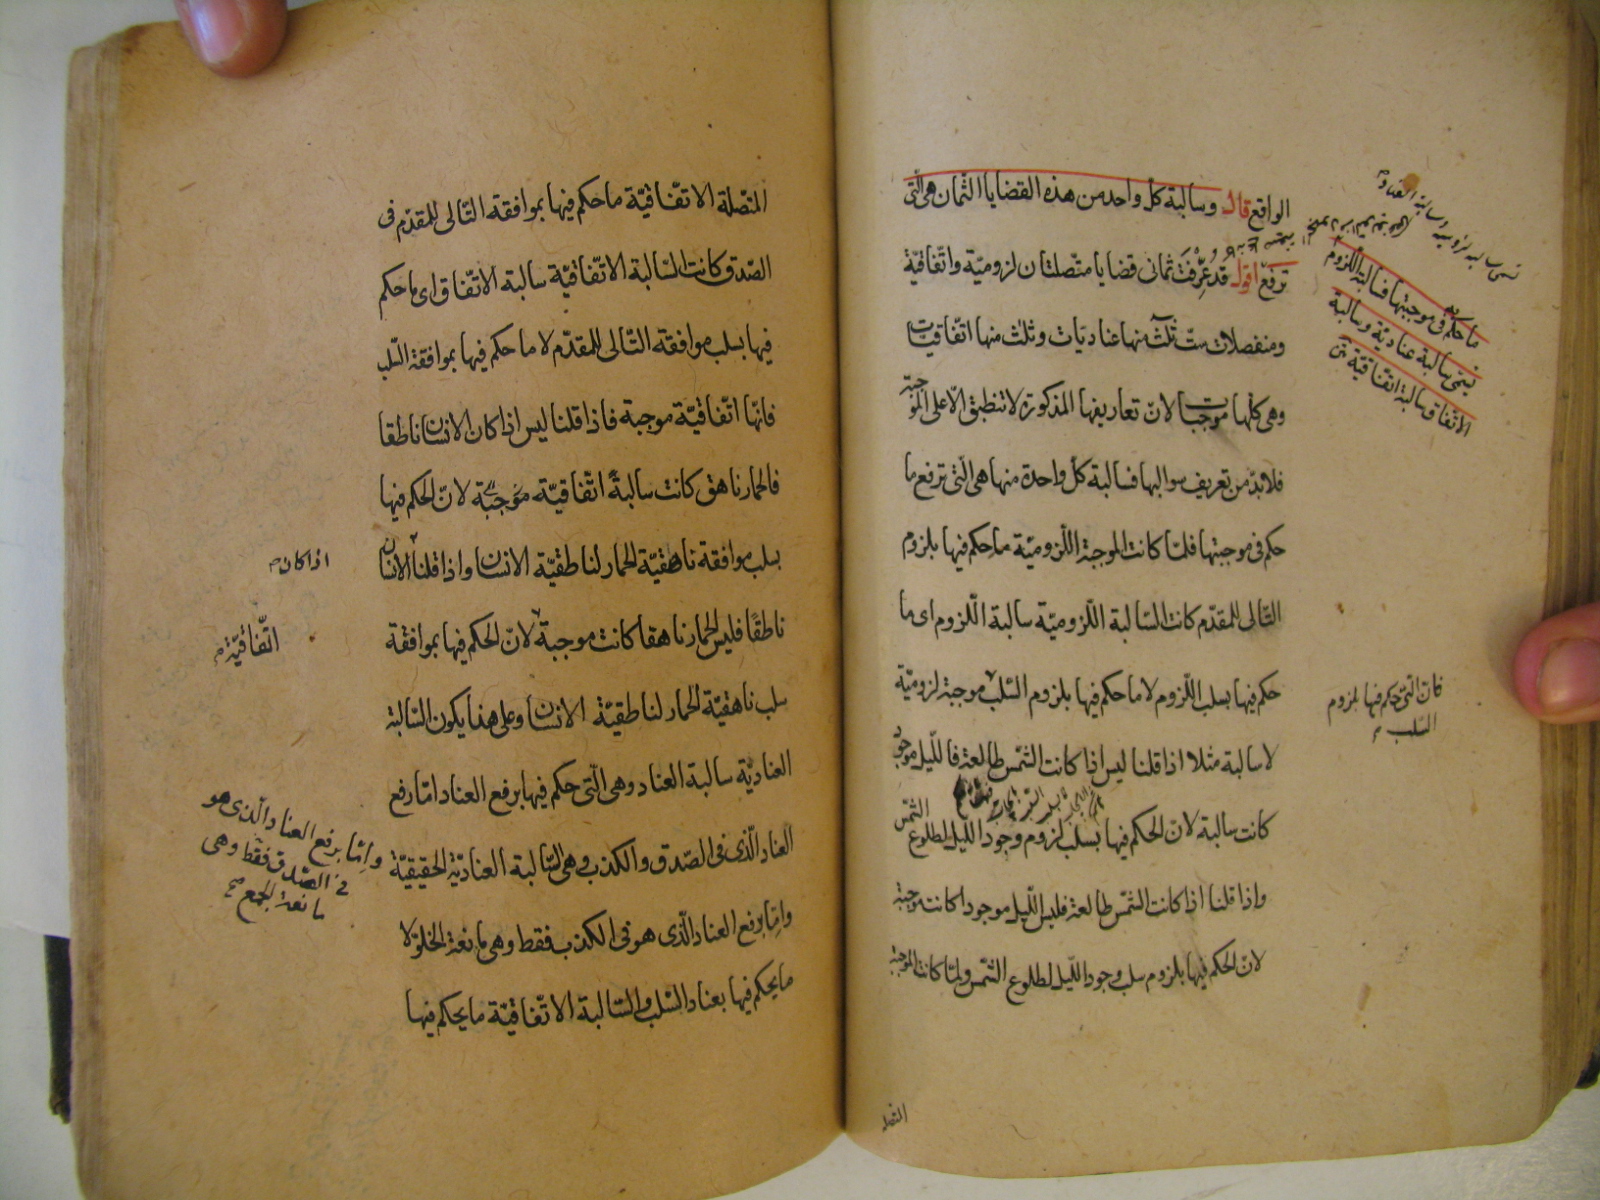 الواقع قال وسالبة كل واحد من هذه القضايا الثمان هى التى
ترفع اقول قد عرفت ثمانى قضايا متصلتان لزومية واتفاقية
ومنفصلات ست ثلث منها عناديات وثلث منها اتفاقيات
وهى كلها موجبات لان تعاريفها المذكورة لا تنطبق الا على الموجبة
فلابد من تعريف سوالبها فسالبة كل واحدة منها هى التى ترفع ما
حكم فى موجبتها فلما كانت الموجبة اللزومية ما حكم فيها بلزوم
التالى للمقدم كانت السالبة اللزومية سالبة اللزوم اى ما
حكم فيها بسلب اللزوم لا ما حكم فيها بلزوم السلب موجبة لزومية
لا سالبة مثلا اذا قلنا ليس اذا كانت الشمس طالعة فالليل موجود
كانت سالبة لان الحكم فيها بسلب لزوم وجود الليل لطلوع الشمس
واذا قلنا اذا كانت الشمس طالعة فليس الليل موجودا كانت موجبة
لان الحكم فيها بلزوم سلب وجود الليل لطلوع الشمس ولما كانت الموجبة
المتصلة
ما حكم فى موجبتها فسالبة اللزوم
تسمى سالبة عنادية وسالبة
الاتفاق سالبة اتفاقية
فان التى حكم فيها بلزوم
السلب
المتصلة الاتفاقية ما حكم فيها بموافقة التالى للمقدم فى
الصدق كانت السالبة الاتفاقية سالبة الاتفاق اى ما حكم
فيها بسلب موافقة التالى للمقدم لا ما حكم فيها بموافقة السلب
فانها اتفاقية موجبة فاذا قلنا ليس اذا كان الانسان ناطقا
فالحمار ناهق كانت سالبة اتفاقية موجبة لان الحكم فيها
بسلب موافقة ناهقية الحمار لناطقية الانسان واذا قلنا الانسان
ناطقا فليس الحمار ناهقا كانت موجبة لان الحكم فيها بموافقة
سلب ناهقية الحمار لناطقية الانسان وعلى هذا يكون السالبة
العنادية سالبة العناد وهى التى حكم فيها برفع العناد اما رفع
العناد الذى فى الصدق والكذب وهى السالبة العنادية الحقيقية
واما برفع العناد الذى هو فى الكذب فقط وهى مانعة الخلو لا
ما يحكم فيها بعناد السلب والسالبة الاتفاقية ما يحكم فيها
اذا كان
اتفاقية
واما برفع العناد الذى هو
فى الصدق فقط وهى
مانعة الجمع صح